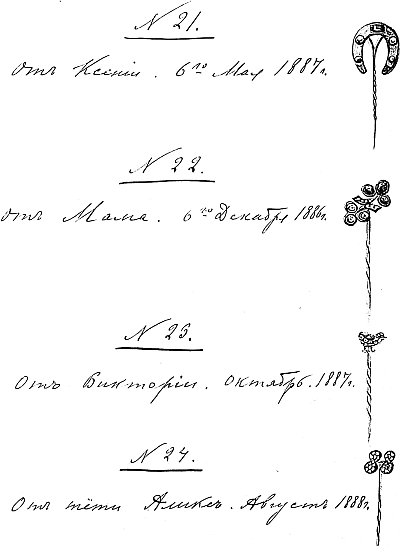 N 21.
отъ Ксеніи. 6го Мая 1887г.
N 22.
отъ Мама. 6го Декабря 1886г.
N 23.
Отъ Викторіи. Октябрь. 1887г.
N 24.
Отъ тёти Аликсъ. Августъ 1888г.